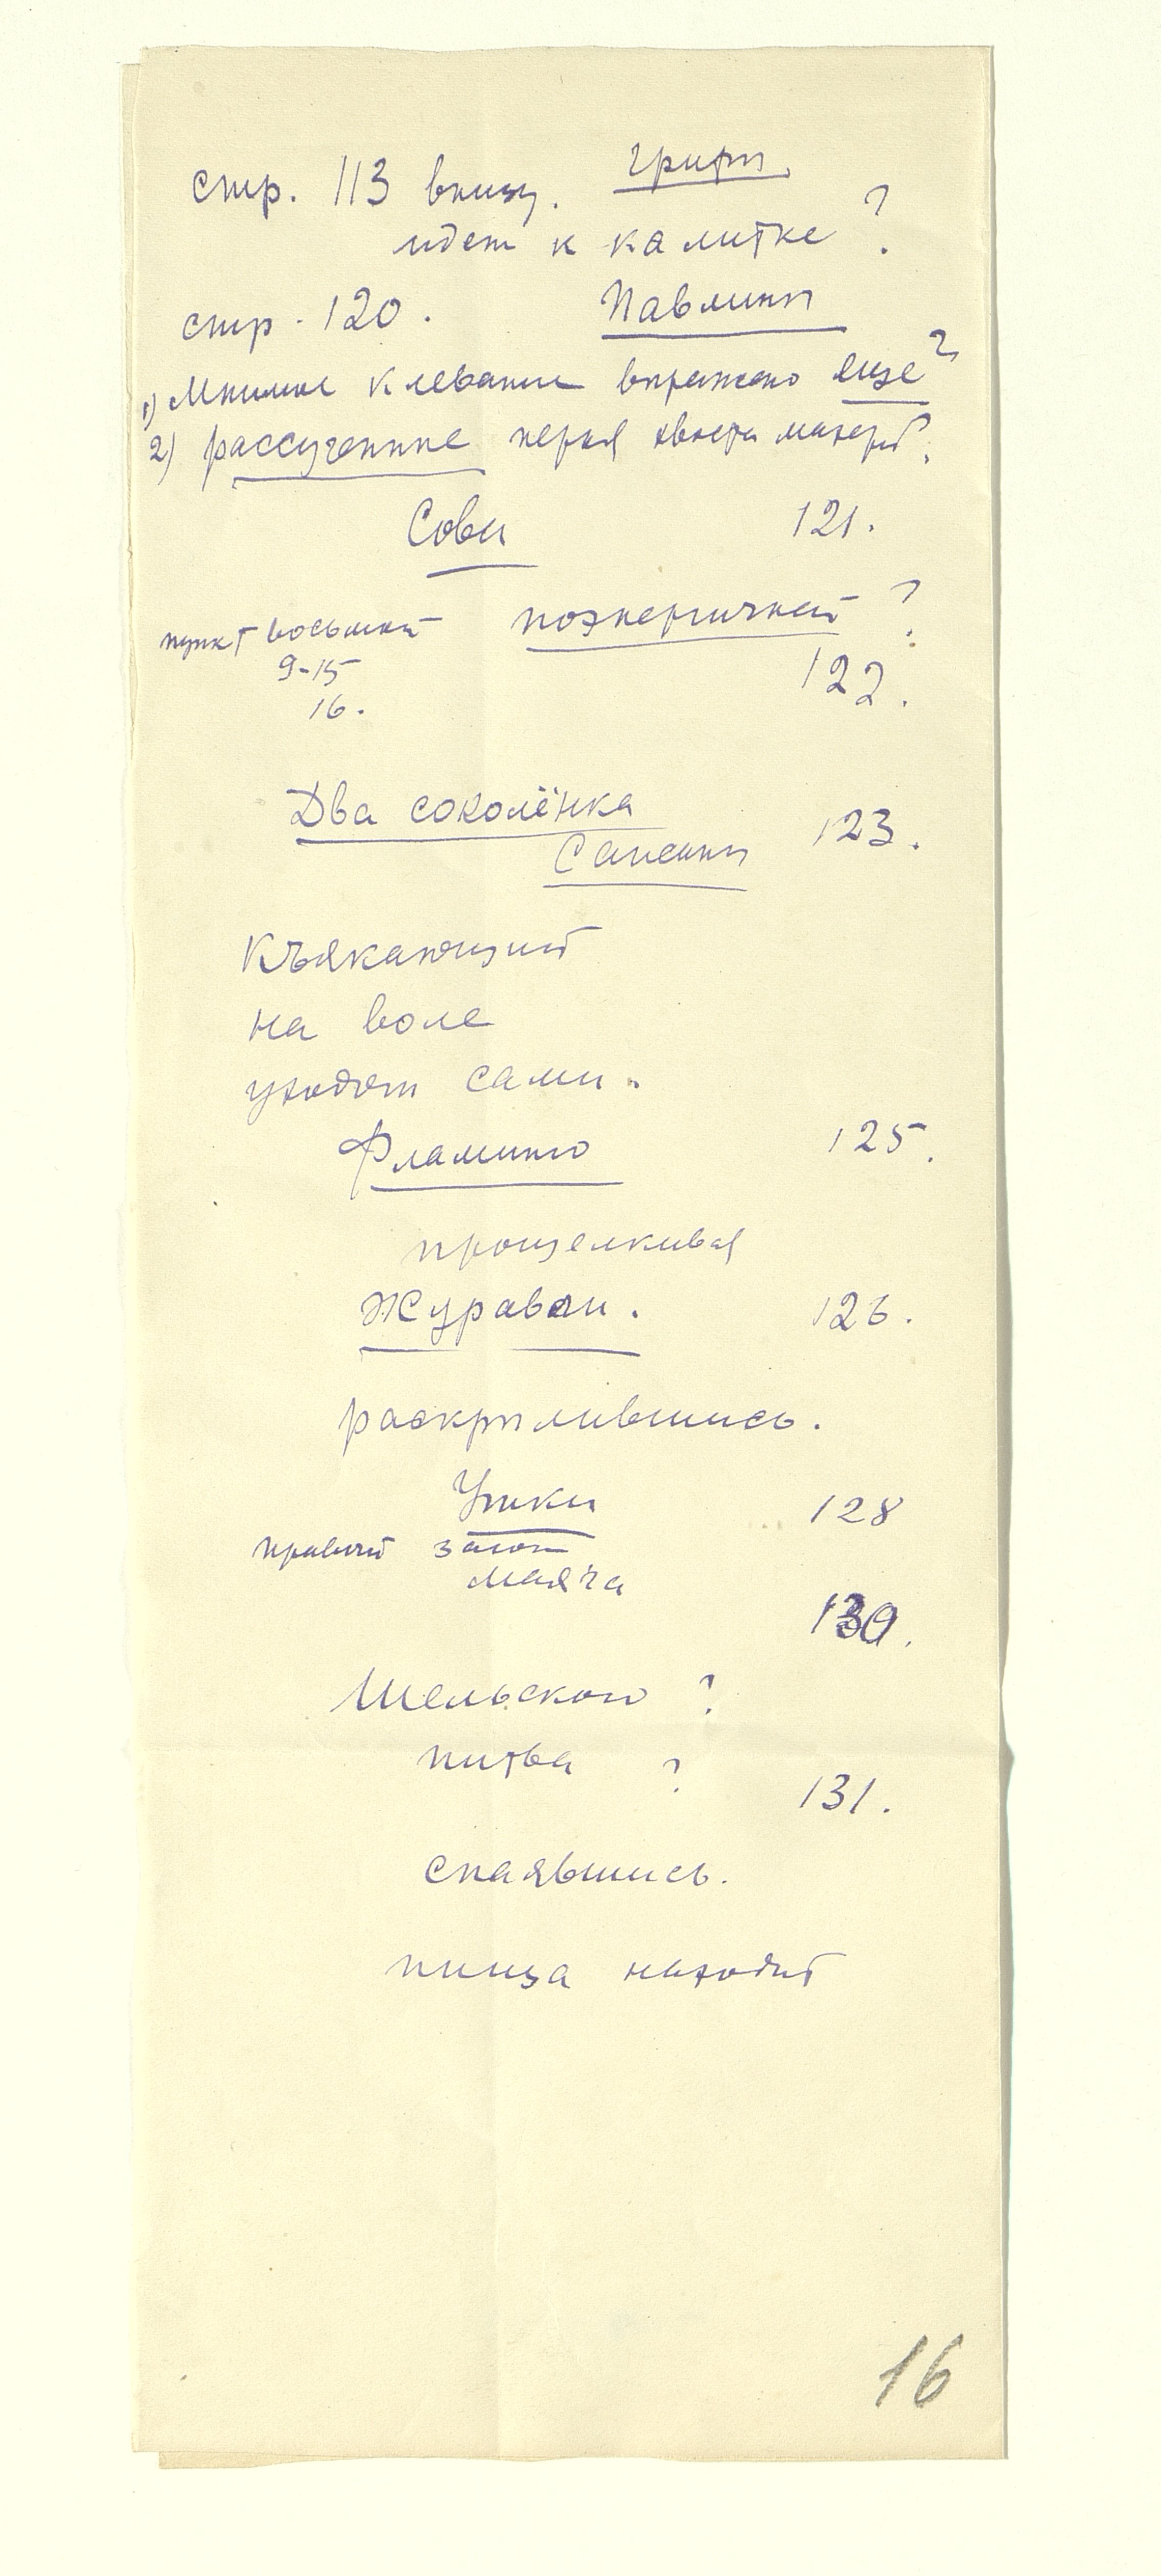 стр. 113 внизу. грифы.
идет к калитке ?
стр. 120. Павлины
1) Мнимое клевание выражено еще?
2) рассученные перья хвоста матерый?
Совы 121.
пункт восьмой поэнергичней ?
9-15
16. 122.
Два соколёнка
Сапсаны 123.
Къякающий
на воле
уходят сами.
Фламинго 125.
прощелкивая
Журавли. 126.
раскрылившись.
Утки 128
правый
маяча
130.
Шельского ?
питва ?
131.
спаявшись.
пища находит
16